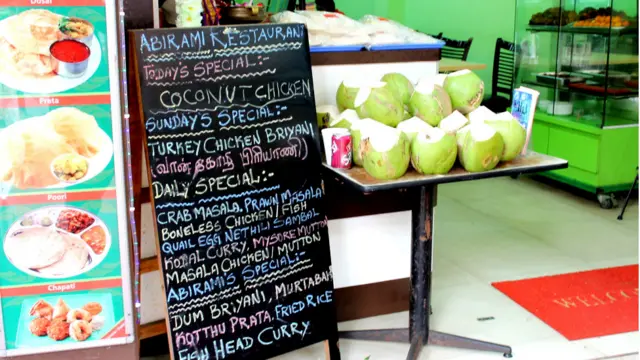 Dosai
Prata
Poori
Chapati
ABIRAMI RESTAURANT
TODAY'S SPECIAL:-
COCONUT CHICKEN
SUNDAY'S SPECIAL:-
TURKEY CHICKEN BRIYANI
(வான் கோழி பிரியாணி)
DAILY SPECIAL:-
CRAB MASALA, PRAWN MASALA
BONELESS CHICKEN/FISH
QUAIL EGG NETHILI SAMBAL
KODAL CURRY, MYSORE MUTTON
MASALA CHICKEN/MUTTON
ABIRAMI'S SPECIAL:-
DUM BRIYANI, MURTABAK
KOTTHU PRATA, FRIED RICE
FISH HEAD CURRY.
WELCOME